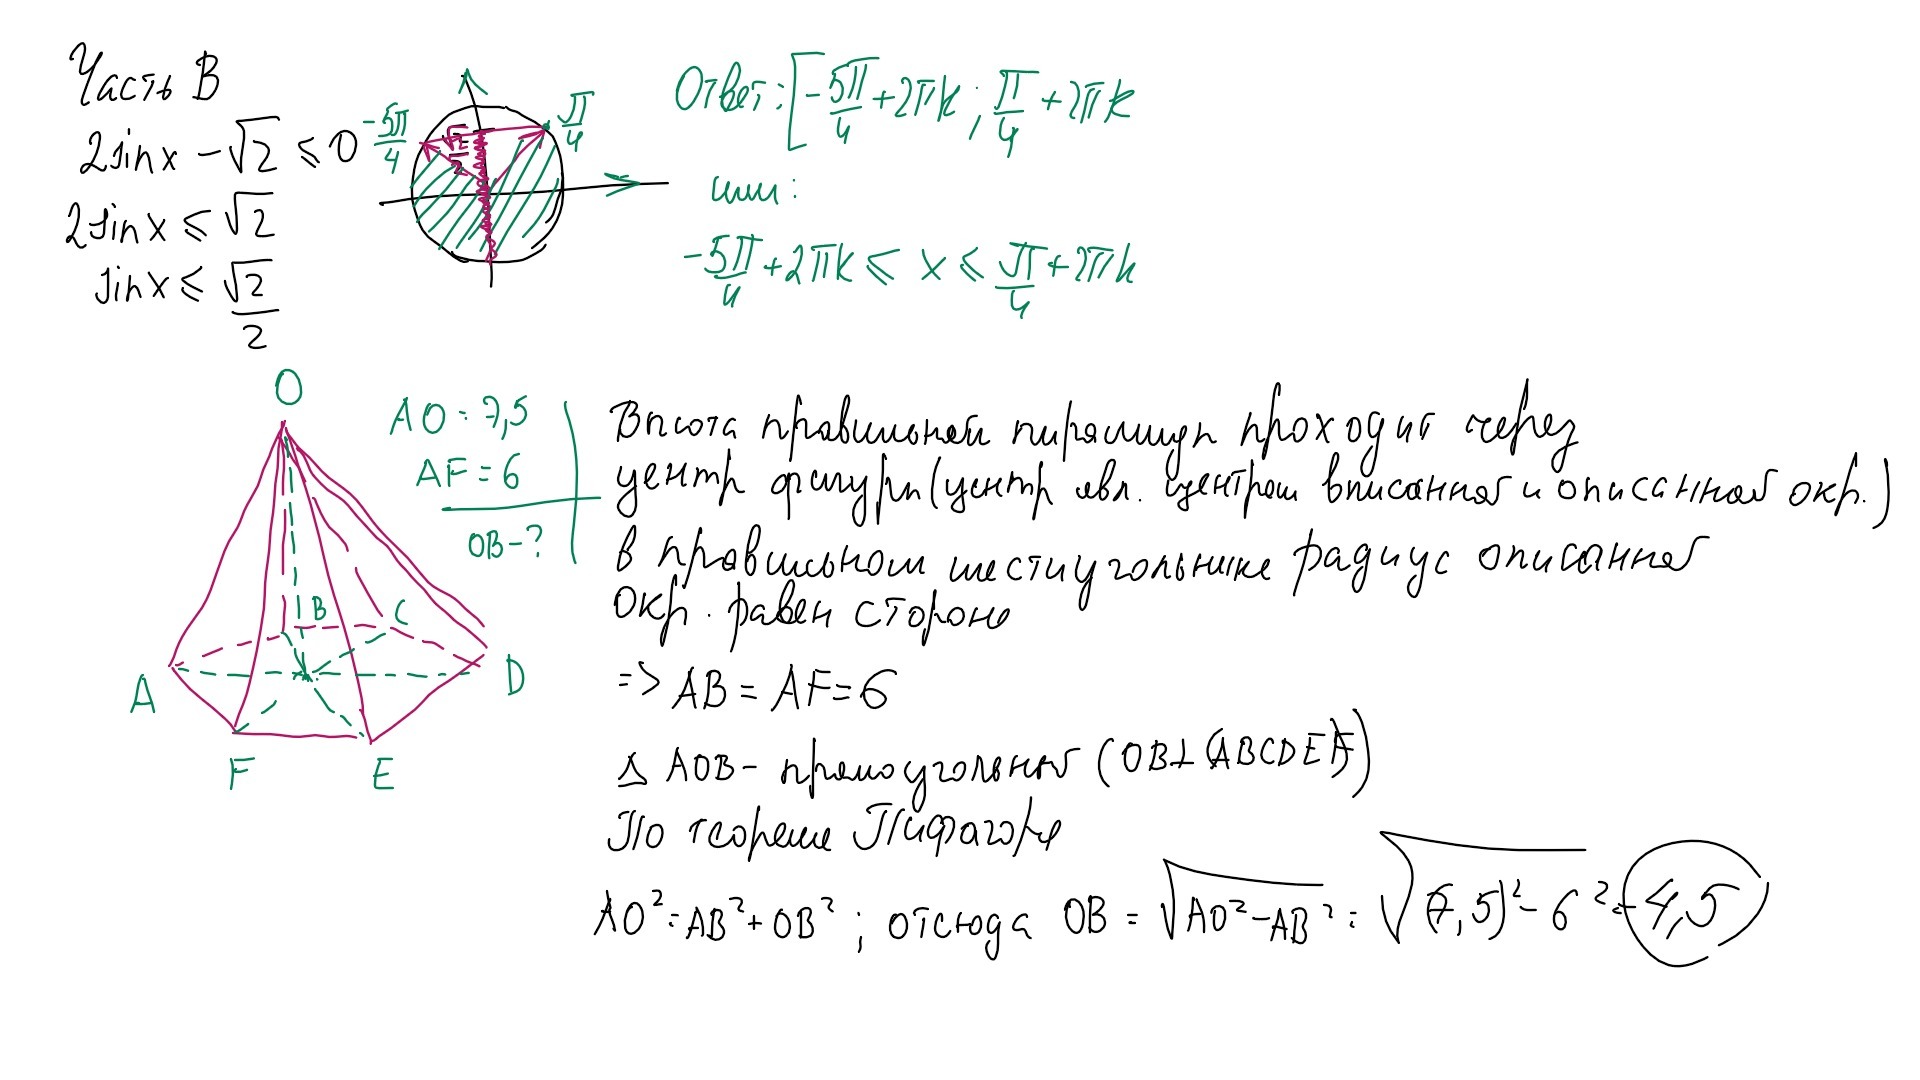 Часть В
2sinx - √2 ⩽ 0
2sinx ⩽ √2
sinx ⩽ √2/2
-5π/4
√2/2
π/4
Ответ: [-5π/4 + 2πk ; π/4 + 2πk
или:
-5π/4 + 2πk ⩽ x ⩽ π/4 + 2πk
O
B
C
A
D
F
E
AO = 7,5
AF = 6
OB - ?
Высота правильной пирамиды проходит через
центр фигуры (центр явл. центром вписанной и описанной окр.)
в правильном шестиугольнике радиус описанной
окр. равен стороне
=> AB = AF = 6
Δ AOB - прямоугольный (OB⊥(ABCDEF))
По теореме Пифагора
AO² = AB² + OB² ; отсюда OB = √(AO² - AB²) = √((7,5)² - 6²) = 4,5